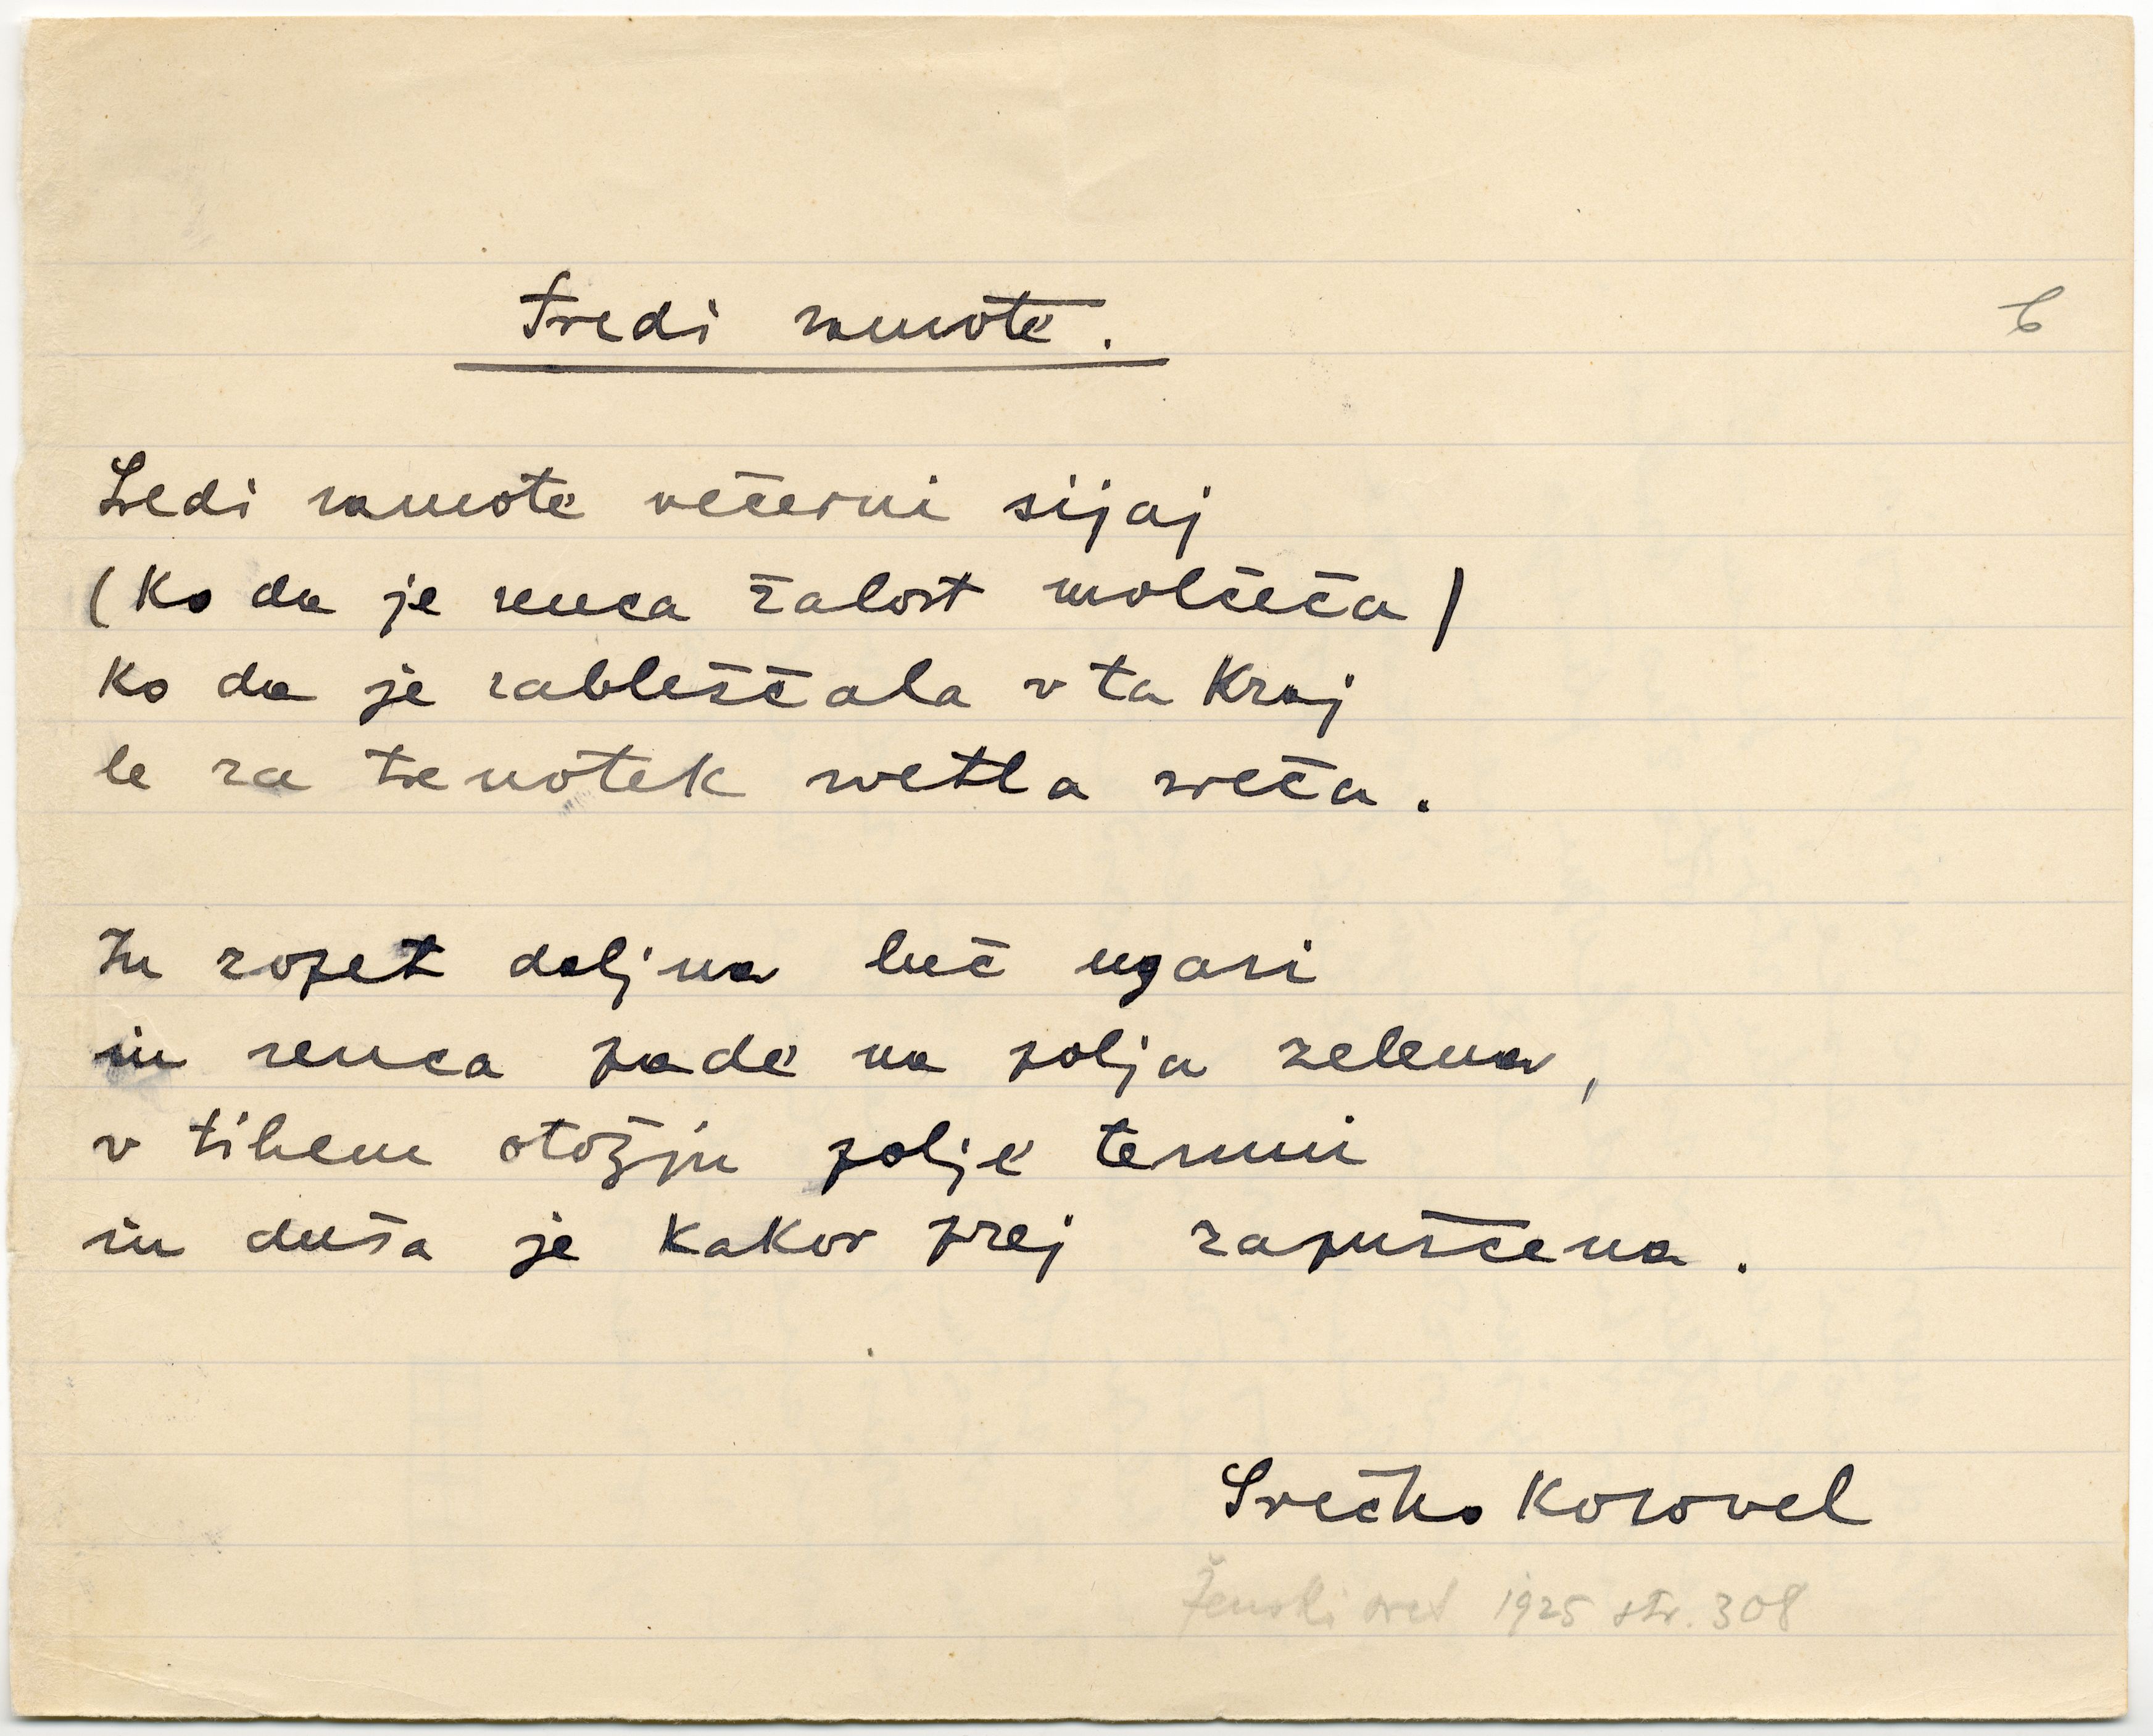 Sredi samote.
6
Sredi samote večerni sijaj
(ko da je senca žalost molčeča)
ko da je zableščala v ta kraj
le za trenotek svetla sreča.
In zopet daljna luč ugasi
in senca pade na polja zelena,
v tihem otožju polje temni
in duša je kakor prej zapuščena.
Srečko Kosovel
Ženski svet 1925 str. 308